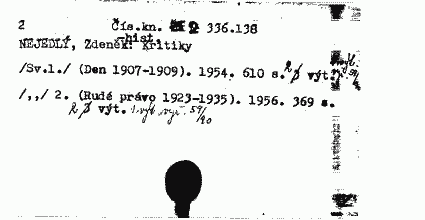 2 Čís.kn. 2 336.138
-hist.
NEJEDLÝ, Zdeněk: Kritiky
/Sv.1./ (Den 1907-1909). 1954. 610 s. 2 výt.
/,,/ 2. (Rudé právo 1923-1935). 1956. 369 s.
2 výt. 59/90